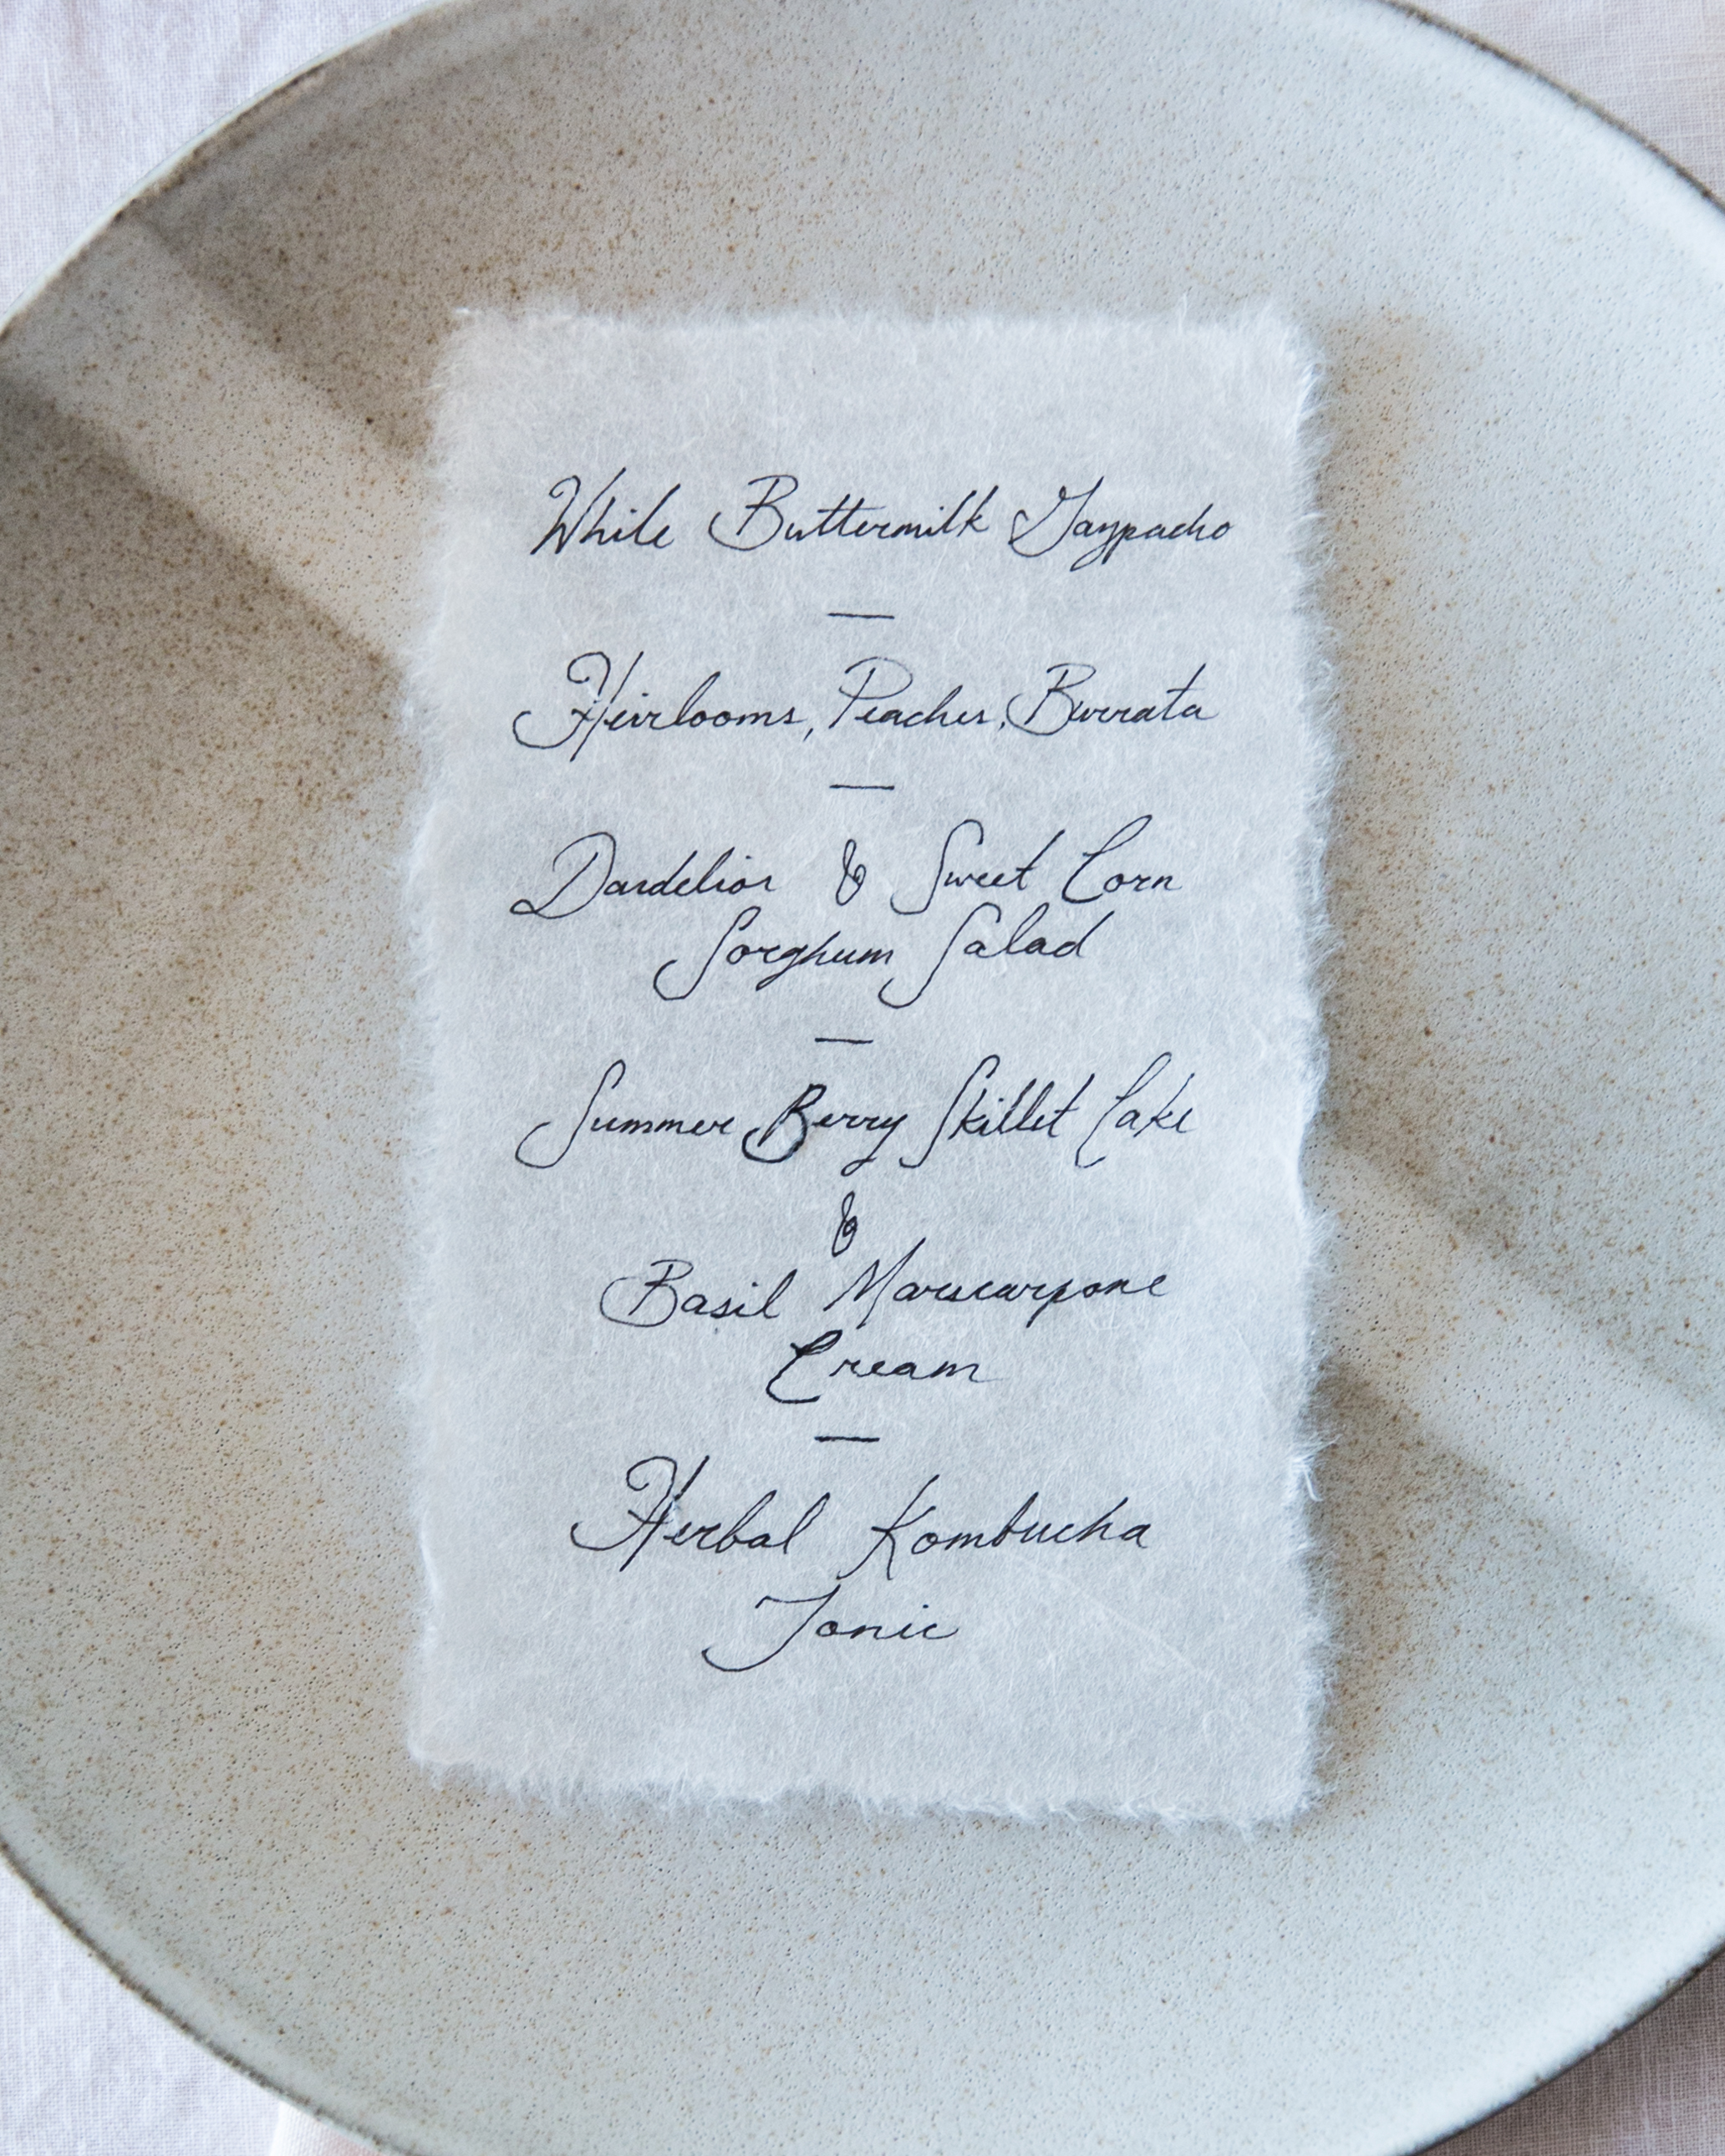 White Buttermilk Gazpacho
Heirlooms, Peaches, Burrata
Dandelion & Sweet Corn
Sorghum Salad
Summer Berry Skillet Cake
&
Basil Marscarpone
Cream
Herbal Kombucha
Tonic